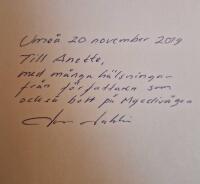 Umeå 20 november 2019
Till Anette,
med många hälsningar
från författaren som
också bott på